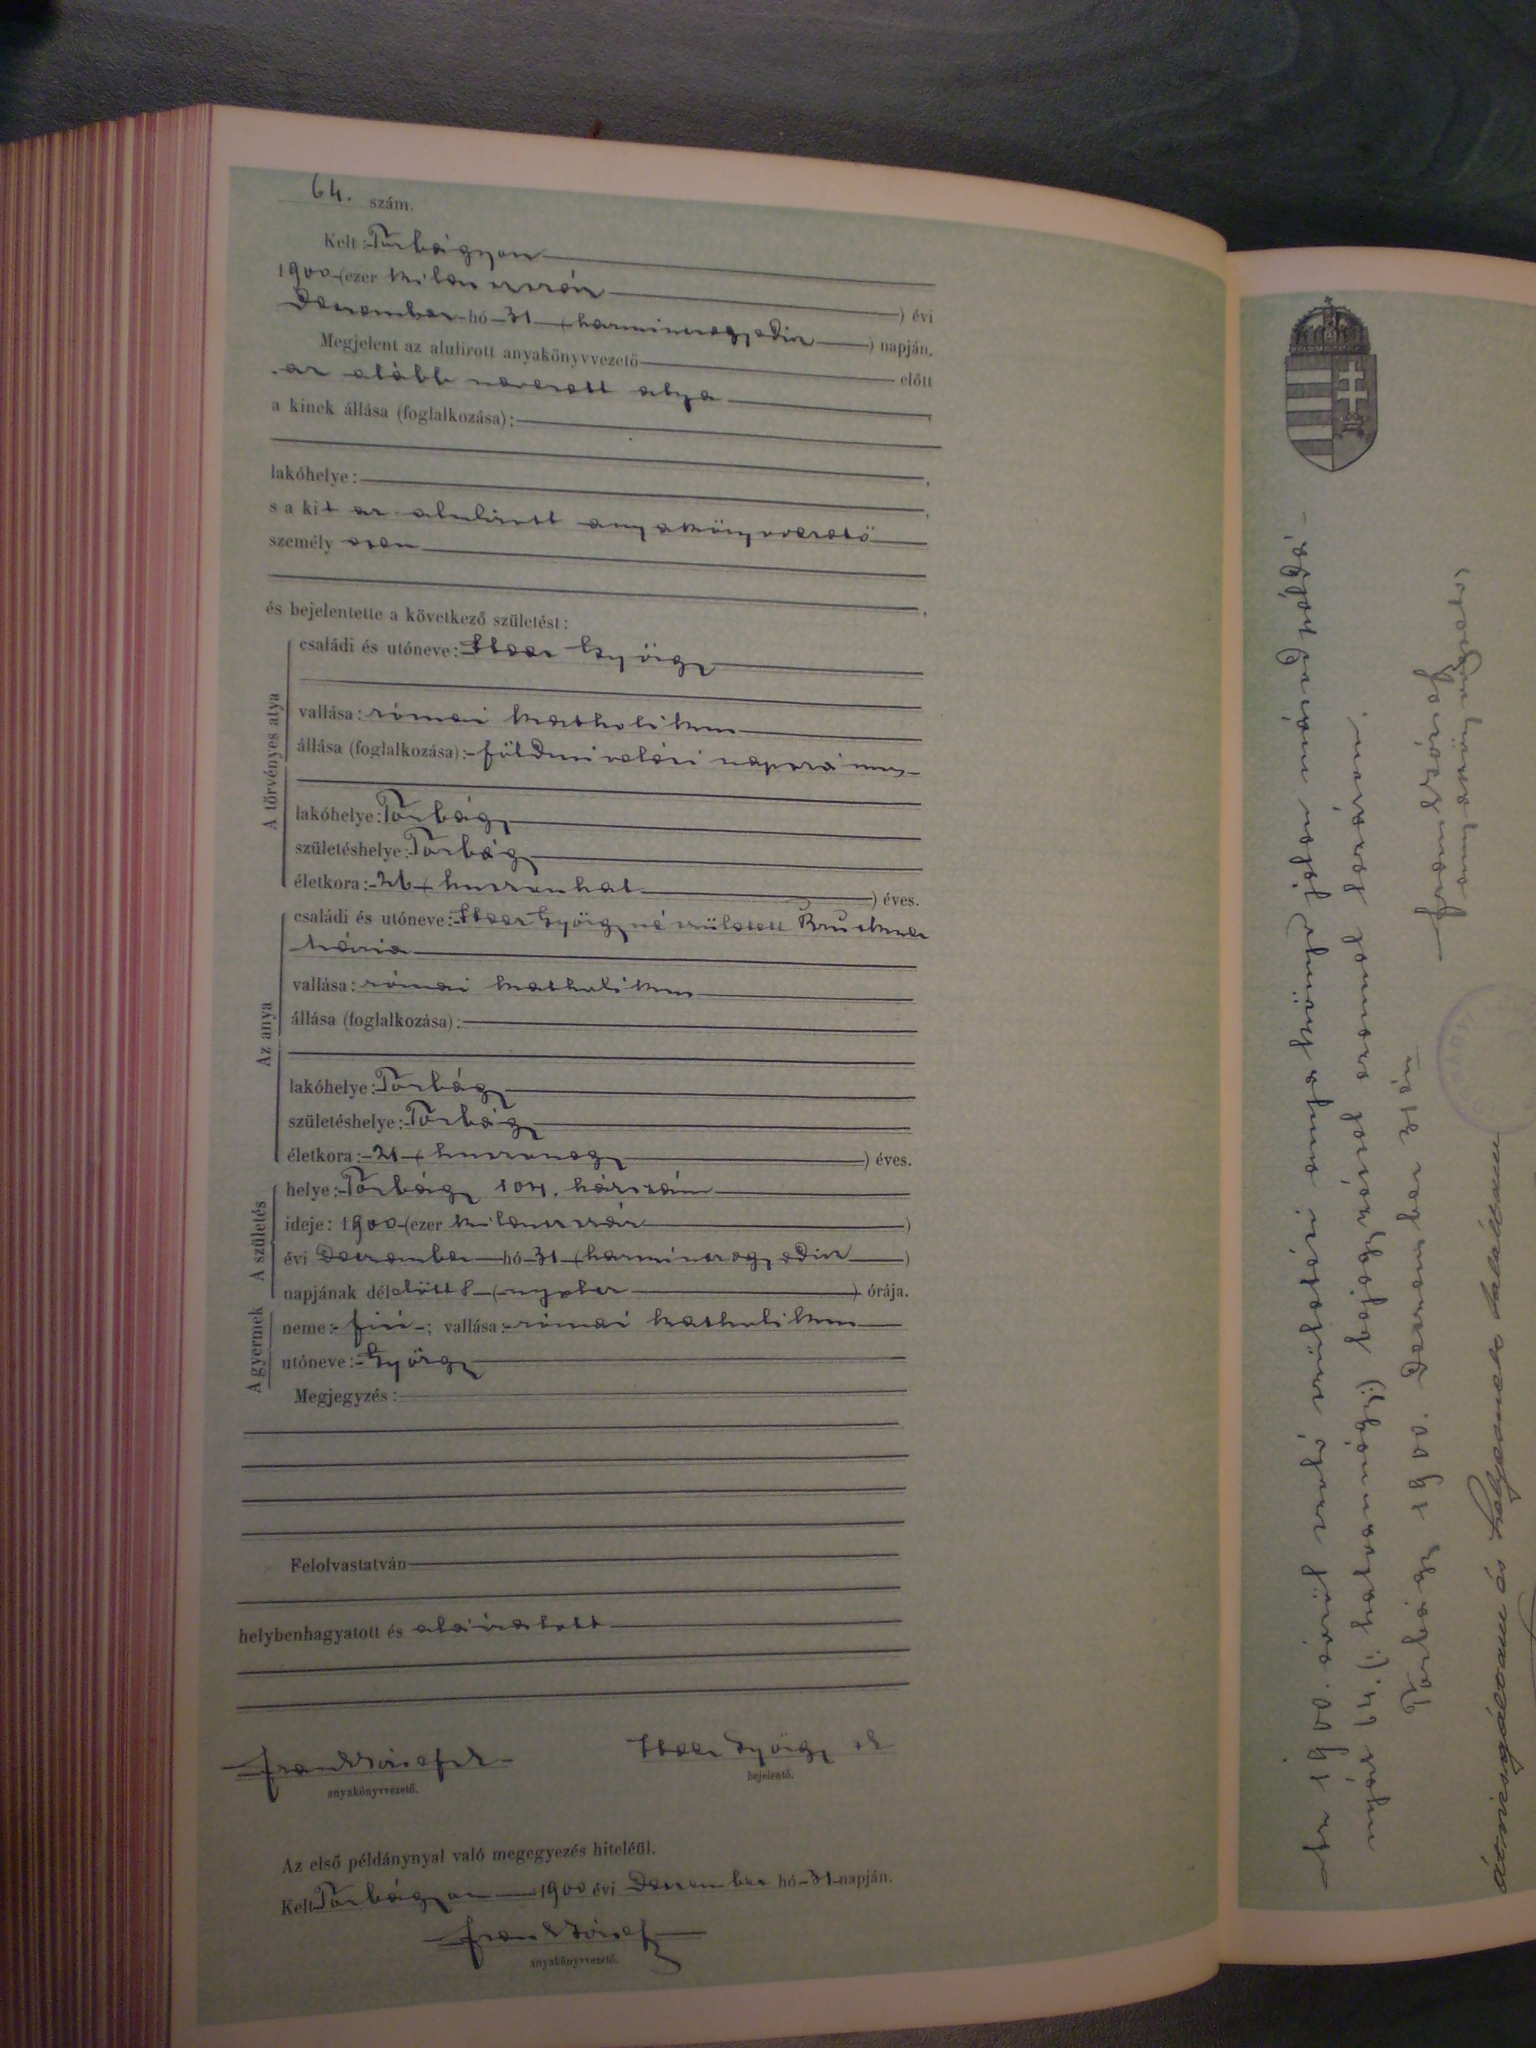 64. szám.
Kelt: Torbágyon
1900 (ezer kilenczszáz) évi
Deczember hó 31 (harminczegyedik) napján.
Megjelent az alulirott anyakönyvvezető előtt
az alább nevezett atya,
a kinek állása (foglalkozása):
lakóhelye:
s a kit az alulirott anyakönyvvezető
személyesen
és bejelentette a következő születést:
A törvényes atya
családi és utóneve: György
vallása: római katholikus
állása (foglalkozása): földmivelési napszámos
lakóhelye: Torbágy
születéshelye: Torbágy
életkora: 26 (huszonhat) éves.
Az anya
családi és utóneve: Györgyné született Bruckner
Mária
vallása: római katholikus
állása (foglalkozása):
lakóhelye: Torbágy
születéshelye: Torbágy
életkora: 21 (huszonegy) éves.
A születés
helye: Torbágy 104. házszám
ideje: 1900 (ezer kilenczszáz)
évi Deczember hó 31 (harminczegyedik)
napjának délelőtt 8 (nyolcz) órája.
A gyermek
neme: fiú; vallása: római katholikus
utóneve: György
Megjegyzés:
Felolvastatván
helybenhagyatott és aláiratott
Frank József
anyakönyvvezető.
György
bejelentő.
Az első példánynyal való megegyezés hiteléül.
Kelt Torbágyon 1900 évi Deczember hó 31 napján.
Frank József
anyakönyvvezető.
Az 1900. évről szóló születési anyakönyv jelen másod példá-
nyát
Torbágy 1900. Deczember 31 én
Frank József
anyakönyvvezető
átvizsgáltam és helyesnek találtam